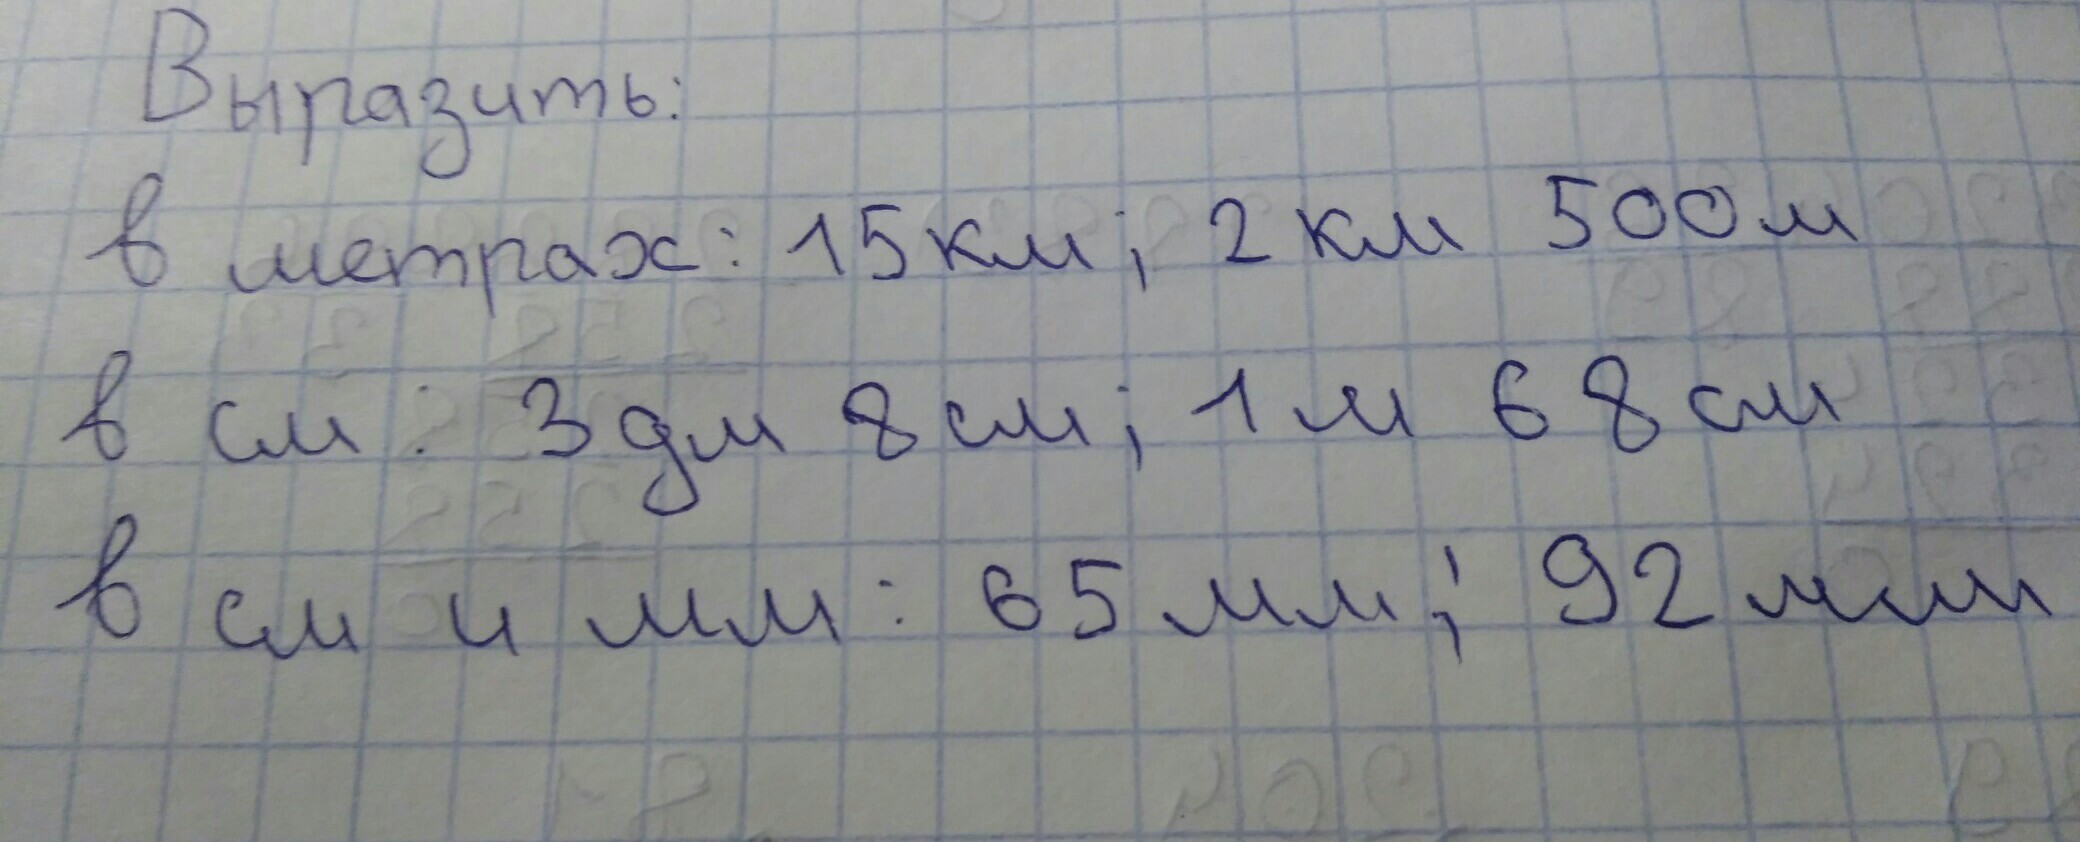 Выразить:
в метрах: 15 км; 2 км 500 м
в см: 3 дм 8 см; 1 м 68 см
в см и мм: 65 мм; 92 мм